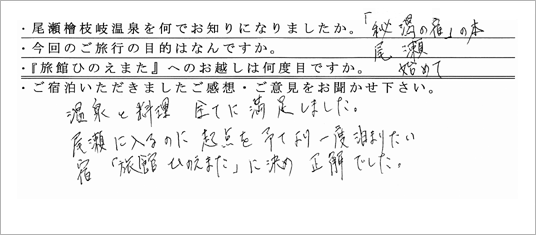 ・尾瀬檜枝岐温泉を何でお知りになりましたか。「秘湯の宿」の本
・今回のご旅行の目的はなんですか。 尾瀬
・『旅館ひのえまた』へのお越しは何度目ですか。 始めて
・ご宿泊いただきましたご感想・ご意見をお聞かせ下さい。
温泉と料理 全てに満足しました。
尾瀬に入るのに起点を 一度泊まりたい
宿「旅館ひのえまた」に決め 正解でした。